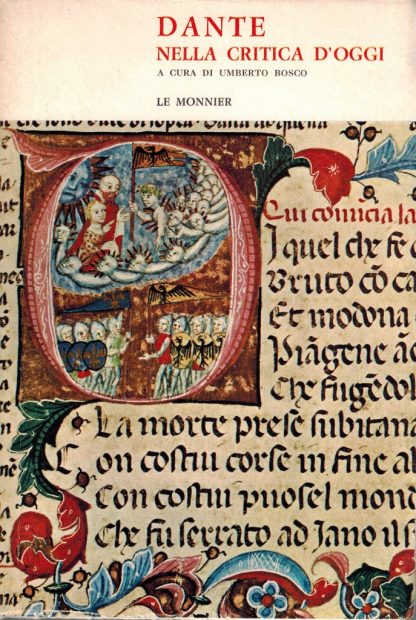 DANTE
NELLA CRITICA D'OGGI
A CURA DI UMBERTO BOSCO
LE MONNIER
Qui comicia la
quel che fe
Bruto cō ca
Et modona
Piāgene
Che fugēdol
La morte prese subitana
Con costui corse in fine al
Con costui puosel mon
Che fu serrato ad Iano il s